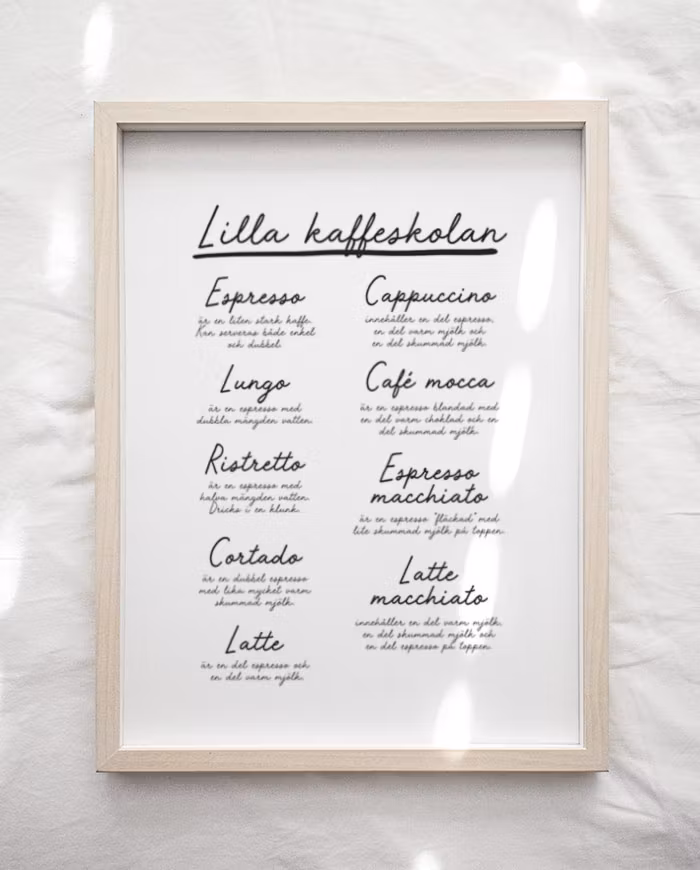 Lilla kaffeskolan
Espresso
är en liten stark kaffe.
Kan serveras både enkel
och dubbel.
Lungo
är en espresso med
dubbla mängden vatten.
Ristretto
är en espresso med
halva mängden vatten.
Dricks i en klunk.
Cortado
är en dubbel espresso
med lika mycket varm
skummad mjölk.
Latte
är en del espresso och
en del varm mjölk.
Cappuccino
innehåller en del espresso,
en del varm mjölk och
en del skummad mjölk.
Café mocca
är en espresso blandad med
en del varm choklad och en
del skummad mjölk.
Espresso
macchiato
är en espresso "fläckad" med
lite skummad mjölk på toppen.
Latte
macchiato
innehåller en del varm mjölk,
en del skummad mjölk och
en del espresso på toppen.